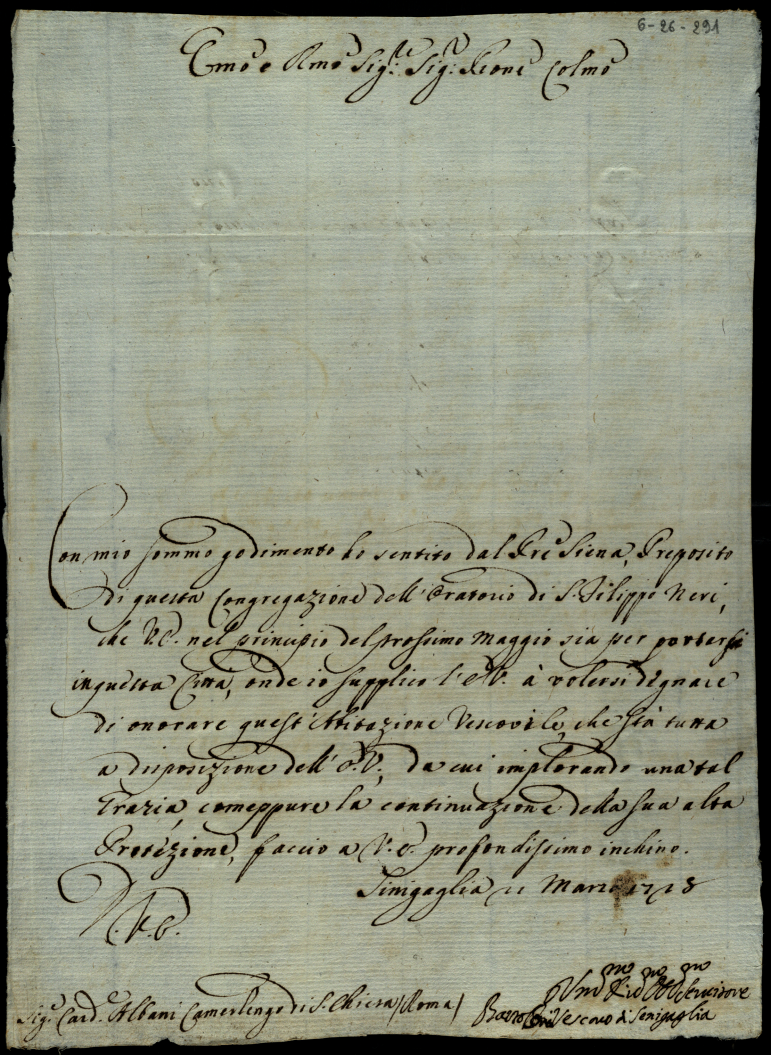 6-26-291
Emo e Rmo Sig.re Sig.r Prone Colmo
Con mio sommo godimento ho sentito dal Pre Siena, Preposito
di questa Congregazione dell'Oratorio di S. Filippo Neri,
che V.E. nel principio del prossimo Maggio sia per portarsi
in questa Città, onde io supplico l'E.V. à volersi degnare
di onorare quest'Abitazione Vescovile, che stà tutta
a disposizione dell'E.V., da cui implorando una tal
Grazia, comeppure la continuazione della sua alta
Protezione, faccio a V.E. profondissimo inchino.
Sinigaglia 11 Marzo
D. V.E.
Umo Dmo Obmo Servitore
Sig.r Card. Albani Camerlengo di S. Chiesa /Roma/
Vescovo di Senigaglia